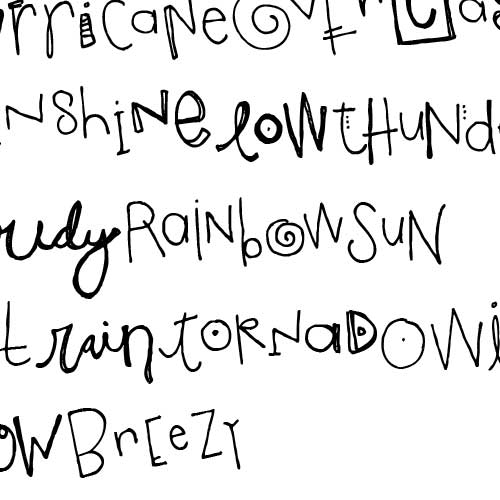 urricaneOvErCas
NShiNE lOWtHUNd
udyRaiNbOWSUN
traintORNaDOWi
OWBrEeZY